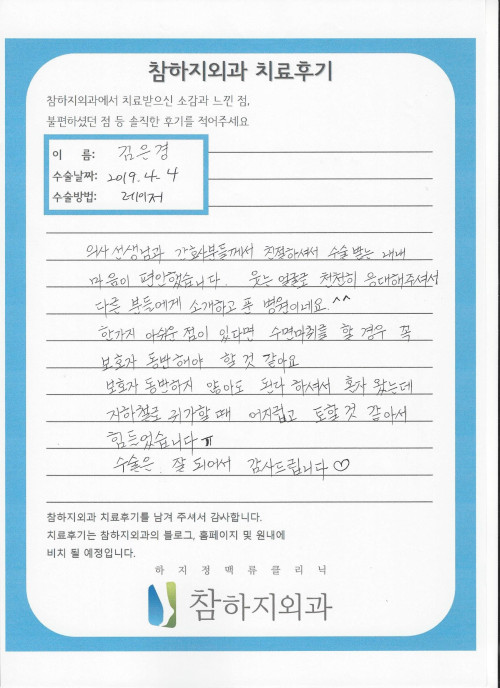 참하지외과 치료후기
참하지외과에서 치료받으신 소감과 느낀 점,
불편하셨던 점 등 솔직한 후기를 적어주세요
이 름: 김은경
수술날짜: 2019.4.4
수술방법: 레이저
의사선생님과 간호사분들께서 친절하셔서 수술 받는 내내
마음이 편안했습니다. 웃는 얼굴로 천천히 응대해주셔서
다른 분들에게 소개하고 픈 병원이네요.^^
한가지 아쉬운 점이 있다면 수면마취를 할 경우 꼭
보호자 동반해야 할 것 같아요
보호자 동반하지 않아도 된다 하셔서 혼자 왔는데
지하철로 귀가할때 어지럽고 토할것 같아서
힘든었습니다 ㅠ
수술은 잘 되어서 감사드립니다♡
참하지외과 치료후기를 남겨 주셔서 감사합니다.
치료후기는 참하지외과의 블로그, 홈페이지 및 원내에
비치 될 예정입니다.
하지정맥류클리닉
참하지외과